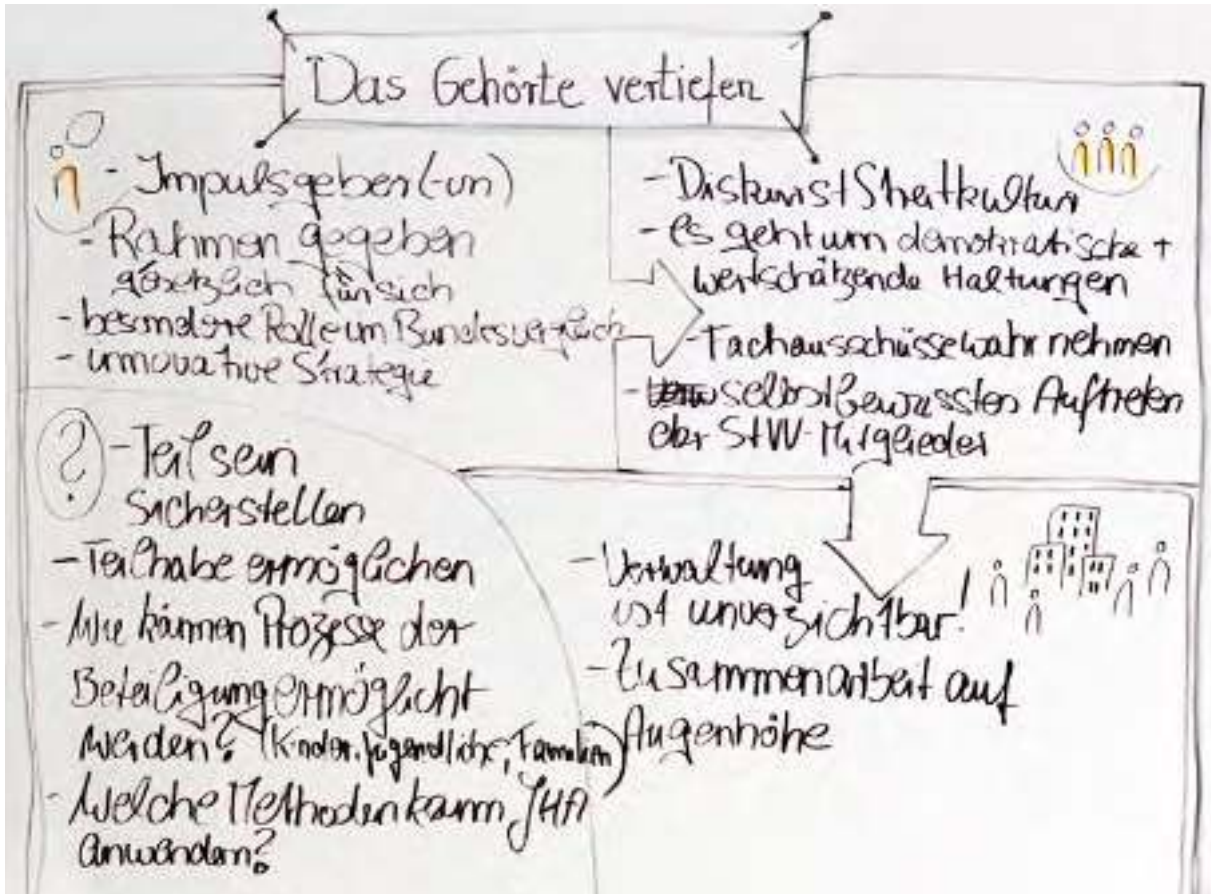 Das Gehörte vertiefen
- Impulsgeber(-in)
- Rahmen gegeben
gesetzlich für sich
- besondere Rolle im Bundesvergleich
- innovative Strategie
- Diskurs + Streitkultur
- es geht um demokratische +
wertschätzende Haltungen
- Fachausschüsse wahrnehmen
- selbstbewusstes Auftreten
der StW-Mitglieder
? - Teil sein
sicherstellen
- Teilhabe ermöglichen
- Wie können Prozesse der
Beteiligung ermöglicht
werden? (Kinder, Jugendliche, Familien)
- Welche Methoden kann JHA
anwenden?
- Verwaltung
ist unverzichtbar!
- Zusammenarbeit auf
Augenhöhe